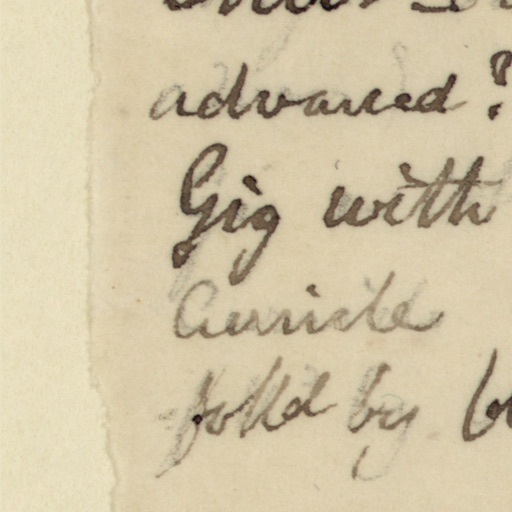 advanced?
Gig with
Auricle
folld by